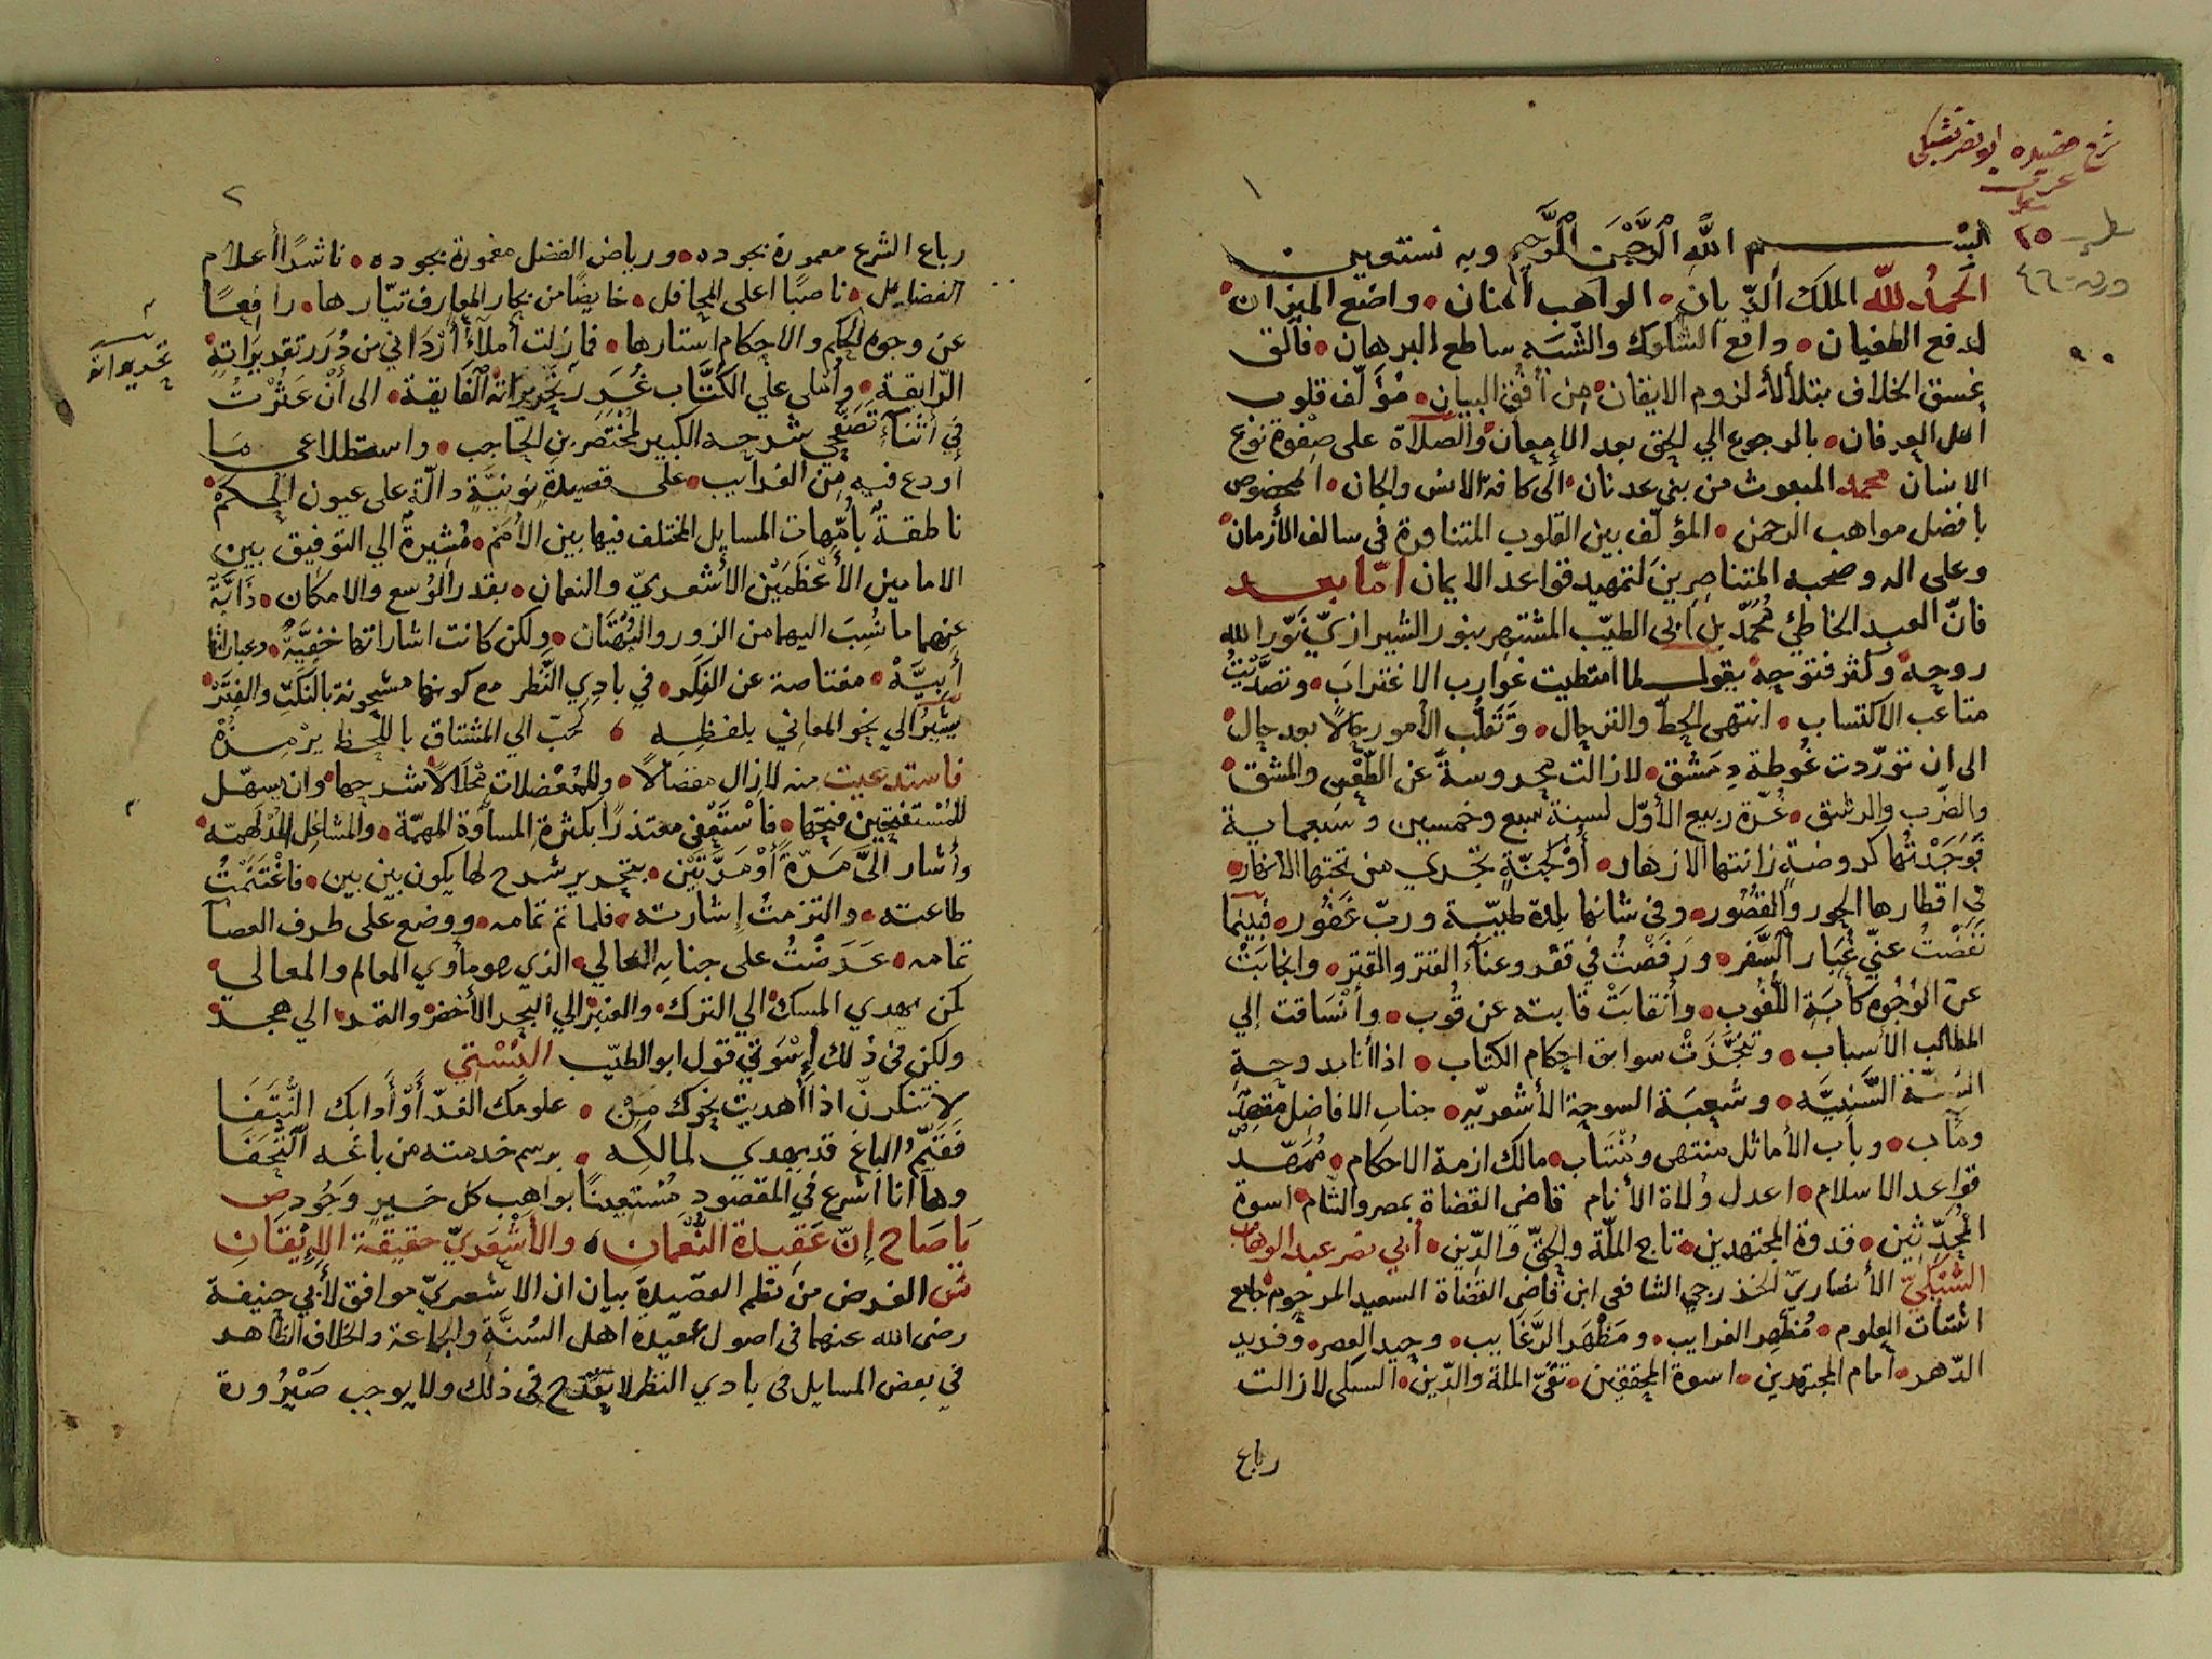 شرح قصيده ابو نصر سبكي
عربي
سطر ٢٥
ورق ٤٦
١
بسم الله الرحمن الرحيم وبه نستعين
الحمدُ للّه الملك الدّيان • الواهب المنان • واضع الميزان •
لدفع الطغيان • دافع الشكوك والشبَه بساطع البرهان • فالق
غسق الخلاف بتلألأ لزوم الايقان • مِن اُفُق البيان • مُؤلّف قلوب
اهل العرفان • بالرجوع الي الحق بعد الامعان • والصلاة على صفوة نوْع
الانسان محمد المبعوث من بني عدنان • الى كافة الانس والجان • المخصوص
بافضل مواهب الرحمن • المؤلّف بين القلوب المتنافرة في سالف الأزمان •
وعلى اله وصحبه المتناصرِينَ لتمهيد قواعد الايمان امّا بعد
فانّ العبد الخاطئ مُحَمّد بن ابى الطيّب المشتهر بنور الشيرازيّ نَوّر الله
روحه • وكثر فتوحه • يقول لما امتطيت غوارب الاغتراب • وتصدّيْتُ
متاعب الاكتساب • انتهى الحطّ والترحال • وتَقلّب الأمور حَالاً بعد حال •
الى ان تورّدت غُوطة دِمَشق • لازالت محروسةً عن الطّعْن والمشق •
والضرب والرشق • غرّة ربيع الأوّل لسنة سبع وخمسين وسَبعماية
فَوَجَدْتُها كروضةٍ زانتها الازهار • أوْ كجنّةٍ تجْري من تحتها الانهار •
في اقطارها الحور والقُصُور • وفي شانها بلدة طيّبة وربّ غفُور • فبينما
نَفَضْتُ عنّي غُبَار السَّفر • ورَفَضْتُ في قفر وعناء الفتر والقتر • وانجابَتْ
عن الوُجُوه كَآبَة اللّغُوب • وأنقابَتْ قابته عن قُوب • وأنْسَاقت إلي
المطالب الأسباب • وتنجّزَتْ سوابق احكام الكتاب • اذا أنابدوحة
السّنة السَّنِيَّه • وشعبَة السرحة الأشعريّه • جناب الافاضل مقصِدٌ
ومآب • وباب الأماثل منتهى ومُنْتَاب • مالك ازمة الاحكام • مُمَهّد
قواعد الاسلام • اعدل وُلاة الأنام قاضى القضاة بمصر والشام • اسوة
المُحدّثين • قدوة المجتهدين • تاج الملّة والحقّ والدّين • أبي نصر عبد الوهاب
السُّبكيّ الأنصاريّ الخزرجي الشافعي ابن قاضى القضاة السعيد المرحوم جامع
اشتات العلوم • مُظْهِر الغرايب • ومَظْهَر الرَّغَايب • وحيد العصر • وفريد
الدّهر • امام المجتهدين • اسوة المحققين • تقىّ الملة والدّين • السبكى لازالت
رباع
٢
رباع الشرع معمورة بجوده • ورياض الفضل مغمورة بجوده • ناشرًا أعلام
الفضايل • ناصبًا اعلى المحافل • خايضًا من بحار المعارف تيّارها • رافعًا
عن وجوه الحكم والاحكام استارها • فمازلت أملأُ أرْدَاني من دُرَر تقريرَاتِهِ •
الرّايقة • وأملى علي الكُتّاب غُرَر تحريراته الفَايقة • الى أنْ عَثَرْتُ
في أثناء تَصَفّحي شرحه الكبير لمُخْتَصَر بن الحَاجب • واستطلاعى مَا
أودع فيه من الغرائب • على قصيدةٍ نونيَّةٍ دالّة على عيون الحكم •
ناطقةٌ بأُمّهات المسايل المختلف فيها بين الأُمَم • مُشيرةٌ الي التوفيق بين
الامامين الأعْظَمَيْن الأشعريّ والنعمان • بقدر الوُسع والامكان • ذَابّة
عنهما ما نُسِبَ اليهما من الزور والبُهْتَان • ولكن كانت اشاراتها خفيَّةٌ • وعباراتها
أبيَّة • معتاصة عن الفِكَر • في بادِي النَّظر مع كونها مشحونة بالنكتِ والفِقَر •
يشيرُ الي نحو المعاني بلفظِه • كحبّ الي المشتاق باللّحظ يرْمِزُ
فاستدعيت منه لازال مفضالاً • وللمُعْضِلات حَلّالاً شرحها • وان يسهّل
للمُسْتفتحين فتحَها • فاسْتَعفى معتذرًا بكثرة المساوَرة المهمّة • والمشاغل المُدْلهمّه •
وأشار اليَّ مَرّةً أوْ مَرَّتَيْن • بتحرير شرح لها يكون بين بين • فاغْتَنَمْتُ
طاعته • والتزمتُ إشارته • فلما تم تمامه • ووضع على طرف العصا
ثمامه • عَرَضْتُ على جنابه العالي • الذي هو مأوي المعالم والمعالي •
كمن يهدي المسك الي الترك • والعنبر الي البحر الأخضر والتمر الي هجر •
ولكن في ذلك إسْوَتي قول ابو الطيّب البُسْتِي
لا تنكرنّ اذا أهديت نحوك مِنْ • علومك الغُرّ أوْ أَدابك النُّتَفَا
فَقَيّمُ الباغ قد يهدي لمالِكه • برسم خدمته من باغه التُّحَفَا
وها انا اشرع في المقصودِ مُسْتعينًا بواهِب كل خيرٍ وَجُود ص
يَاصَاحِ إنّ عَقِيدة النُّعْمانِ • والأشْعَريّ حقيقة الإيْقَانِ
ش الغرض من نظم القصيدة بيان ان الاشعريّ موافق لأبي حنيفة
رضى الله عنهما في اصول عقيدة اهل السُنَّةِ والجماعة والخلاف الظاهر
في بعض المسايل فى بادي النظر لا يَقْدَح فى ذلك ولا يوجب صَيْرُورة
تحريراته